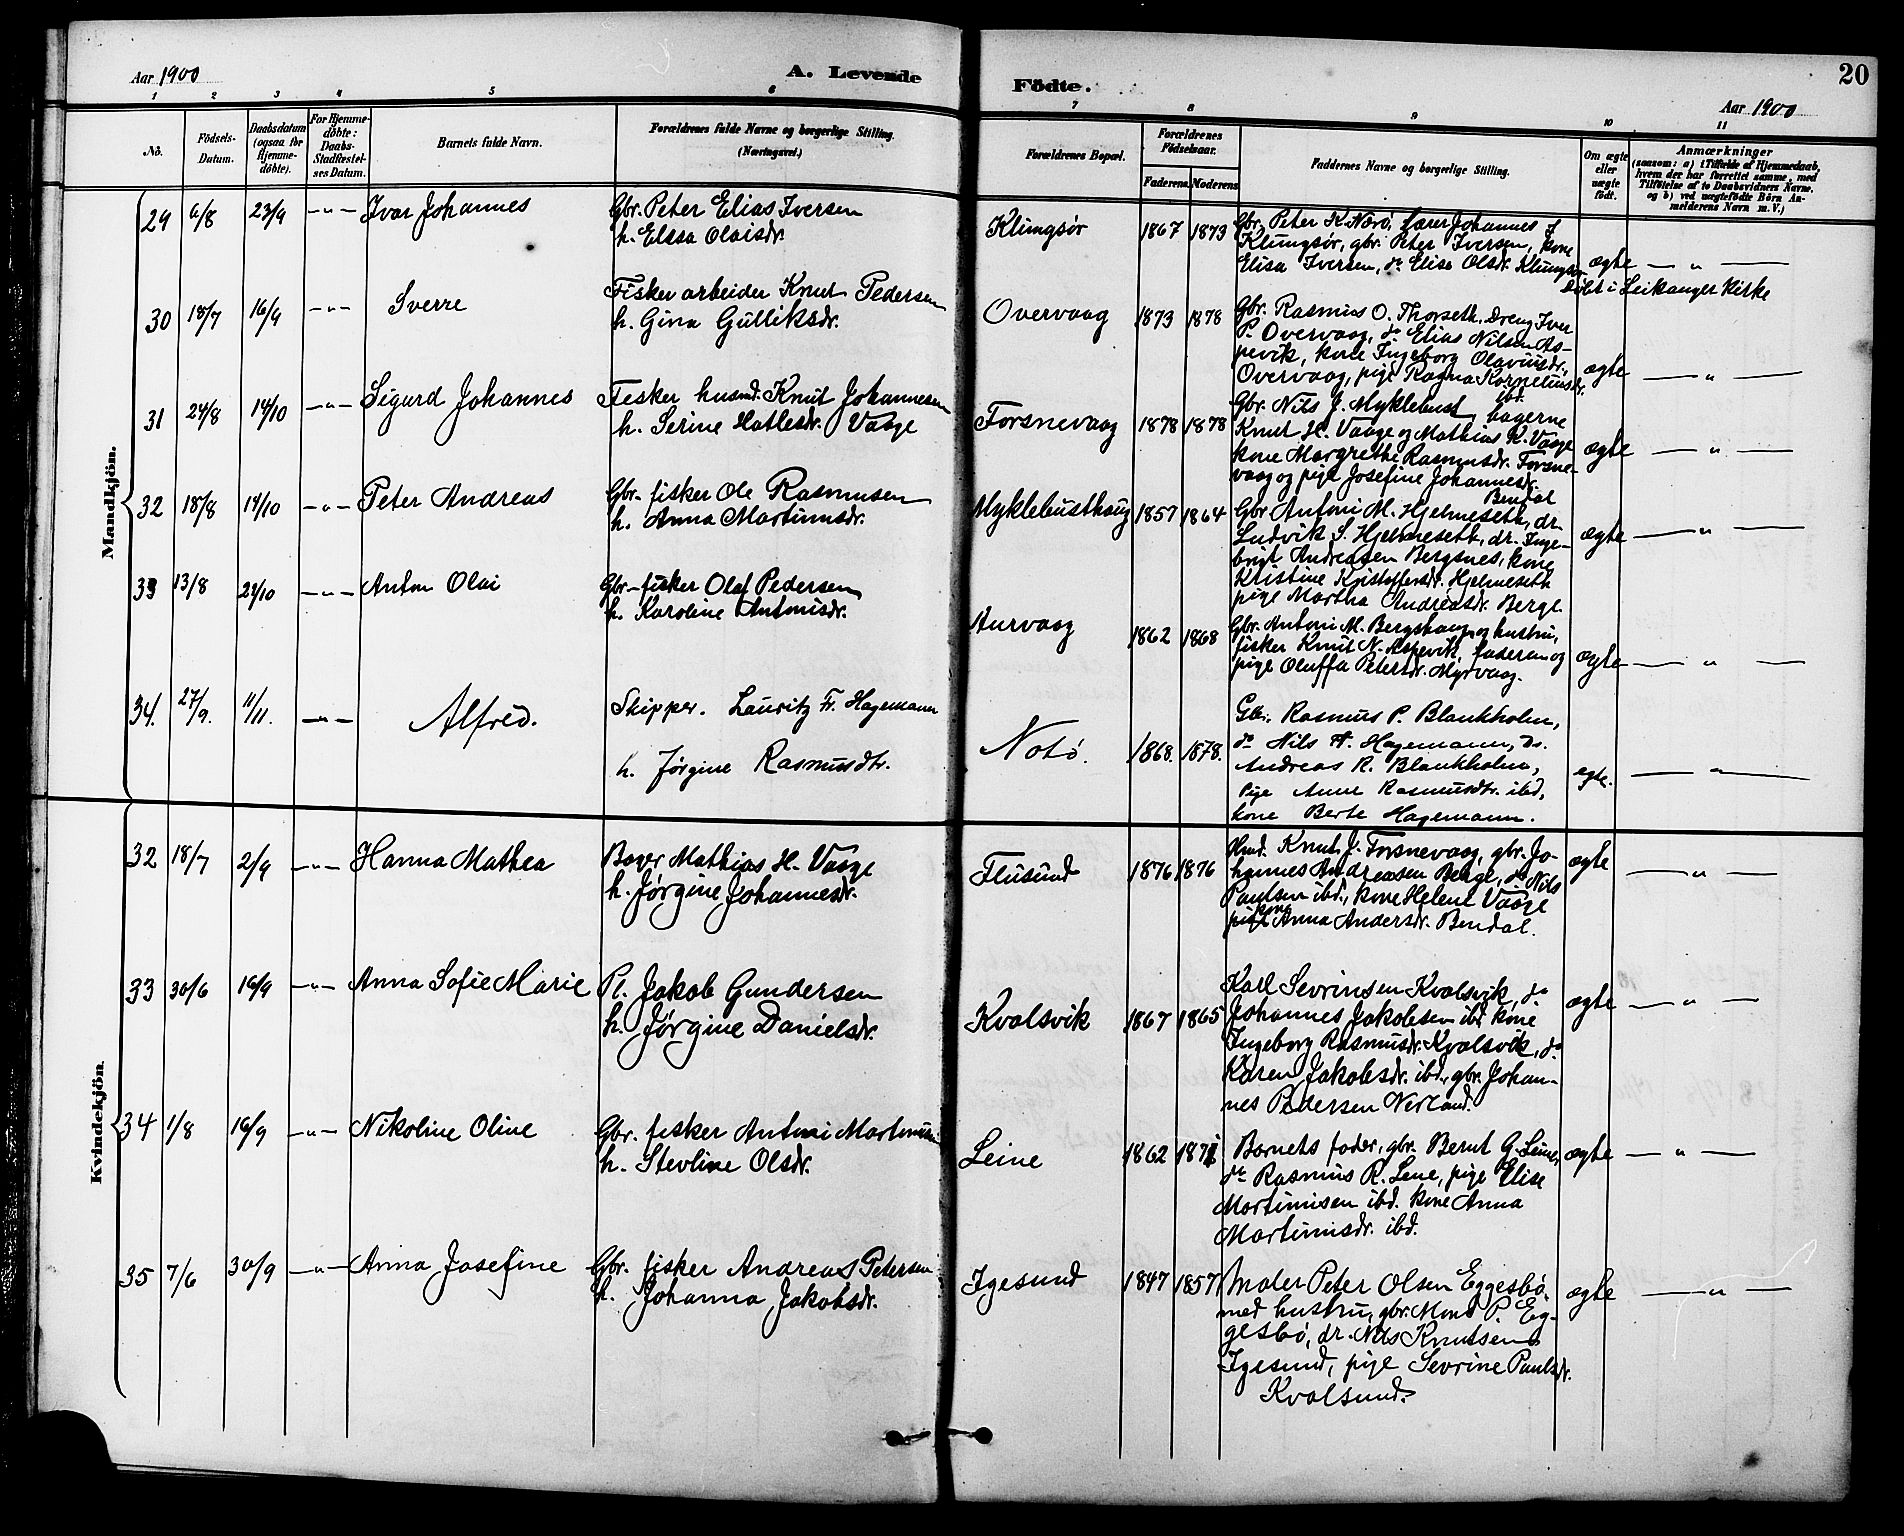 Aar 1900
A. Levende
Födte.
20
Aar 1900
1 2 3 4 5 6 7 8 9 10 11
No.
Födsels-Datum.
Daabsdatum (ogsaa for Hjemme-döbte).
For Hjemme-döbte: Daabs-Stadfæstel-ses Datum.
Barnets fulde Navn.
Forældrenes fulde Navne og borgerlige Stilling.
(Næringsvei.)
Forældrenes Bopæl.
Forældrenes Födselsaar.
Faderens. Moderens
Faddernes Navne og borgerlige Stilling.
Om ægte eller uægte födt.
Anmærkninger
(saasom: a) i Tilfælde af Hjemmedaab,
hvem der har forrettet samme, med
Tilföielse af to Daabsvidners Navne.
og b) ved uægtefödte Börn An-
melderens Navn m. V.)
Mandkjön.
29 6/8 23/9 -"- Ivar Johannes
Gbr. Peter Elias Iversen
h. Elssa Olaisdr.
Klungsør 1867 1873
Gbr. Peter K. Nærø, lærer Johannes J
Klungsør, gbr. Peter Iversen, kone
Elisa Iversen, do Elise Olsdr. Klungsør
ægte — " —
Döbt i Leikanger Kirke
30 18/7 16/9 -"- Sverre
Fisker arbeider Knut Pedersen
h. Gina Gulliksdr.
Overvaag 1873 1878
Gbr. Rasmus O. Thorseth, Dreng Iver
P. Overvaag, do Elias Nilsen As-
pevik, kone Ingeborg Olaviusdr.,
Overvaag, pige Ragna Korneliusdr.
ibd.
ægte — " —
31 24/8 14/10 -"- Sigurd Johannes
Fisker husmd. Knut Johannesen
h. Serine Hatlesdr. Vaage
Forsnevaag 1878 1878
Gbr. Nils J. Myklebust, bagerne
Knut H. Vaage og Mathias K. Vaage
kone Margrethe Rasmusdr. Forsne-
vaag og pige Josefine Johannesdr.
Bendal
ægte — " —
32 18/8 14/10 -"- Peter Andreas
Gbr- fisker Ole Rasmusen
h. Anna Martinusdr.
Myklebusthaug 1857 1864
Gbr Antoni M. Hjelmeseth, dr.
Ludvik S. Hjelmeseth, dr. Inge-
brigt Andreasen Bergsnes, kone
Kristine Kristoffersdr. Hjelmeseth
pige Martha Andreasdr. Berge
ægte — " —
33 13/8 21/10 -"- Anton Olai
Gbr-fisker Olaf Pedersen
h. Karoline Antonisdr.
Aurvaag 1862 1868
Gbr. Antoni M. Bergshaug og hustru,
fisker Knut N. Aspevik, faderen og
pige Oluffa Petersdr. Myrvaag.
ægte — " —
34. 27/9. 11/11. -"- Alfred.
Skipper. Lauritz Fr. Hagemann
h. Jørgine Rasmusdtr.
Notö. 1868. 1878.
Gbr. Rasmus P. Blankholm,
do Nils A. Hagemann, do.
Andreas R. Blankholm,
Pige Anne Rasmusdtr. ibd,
kone Berte Hagemann.
egte. — " —
Kvindekjön.
32 18/7 2/9 -"- Hanna Mathea
Bager Mathias H. Vaage
h. Jørgine Johannesdr.
Flusund 1876 1876
Husmd. Knut J. Forsnevaag, gbr. Jo-
hannes Andreasen Berge, do Nils
Paulsen ibd., kone Helene Vaage
kone
pige Anna Andersdr. Bendal.
ægte — " —
33 30/6 16/9 -"- Anna Sofie Marie
Pl. Jakob Gundersen
h. Jørgine Danielsdr.
Kvalsvik 1867 1865
Karl Sevrinsen Kvalsvik, do
Johannes Jakobsen ibd kone
Ingeborg Rasmusdr. Kvalsvik, do
Karen Jakobsdr. ibd., gbr. Johan-
nes Pedersen Nerland.
ægte — " —
34 1/8 16/9 -"- Nikoline Oline
Gbr. fisker Antoni Martinusen
h. Stevline Olsdr.
Leine 1862 1871
Barnets fader, gbr. Bernt G. Leine,
do Rasmus R. Leine, pige Elise
Martinusen ibd. kone Anna
Martinusdr. ibd.
ægte — " —
35 7/6 30/9 -"- Anna Josefine
Gbr. fisker Andreas Petersen
h. Johanna Jakobsdr.
Igesund 1847 1857
Maler Peter Olsen Eggesbø,
med hustru, gbr. Mons P. Eg-
gesbø, dr. Nils Knutsen
Igesund, pige Sevrine Paulsdr.
Kvalsund.
ægte — " —